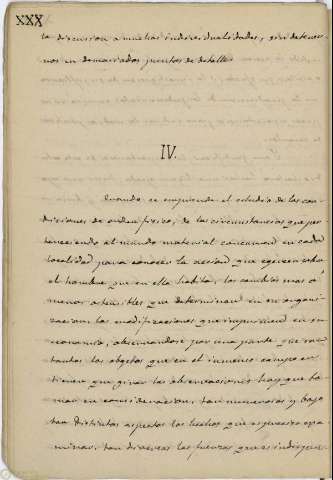 XXX
la discusion a muchas individualidades, y sin detener-
nos en demasiados puntos de detalle.
IV.
Cuando se emprende el estudio de las con-
diciones de orden fisico, de las circunstancias que per-
teneciendo al mundo material concurren en cada
localidad para conocer la accion que egercen sobre
el hombre que en ella habita, los cambios mas ó
menos ostensibles que determinan en su organi-
zacion, las modificaciones que imprimen en su
economia, observandose por una parte que son
tantos los objetos que en el inmenso campo en
tienen que girar las observaciones hay que to-
mar en consideracion, tan numerosos y bajo
tan distintos aspectos los hechos que es preciso exa-
minar, tan diversas las fuerzas que es indispen-